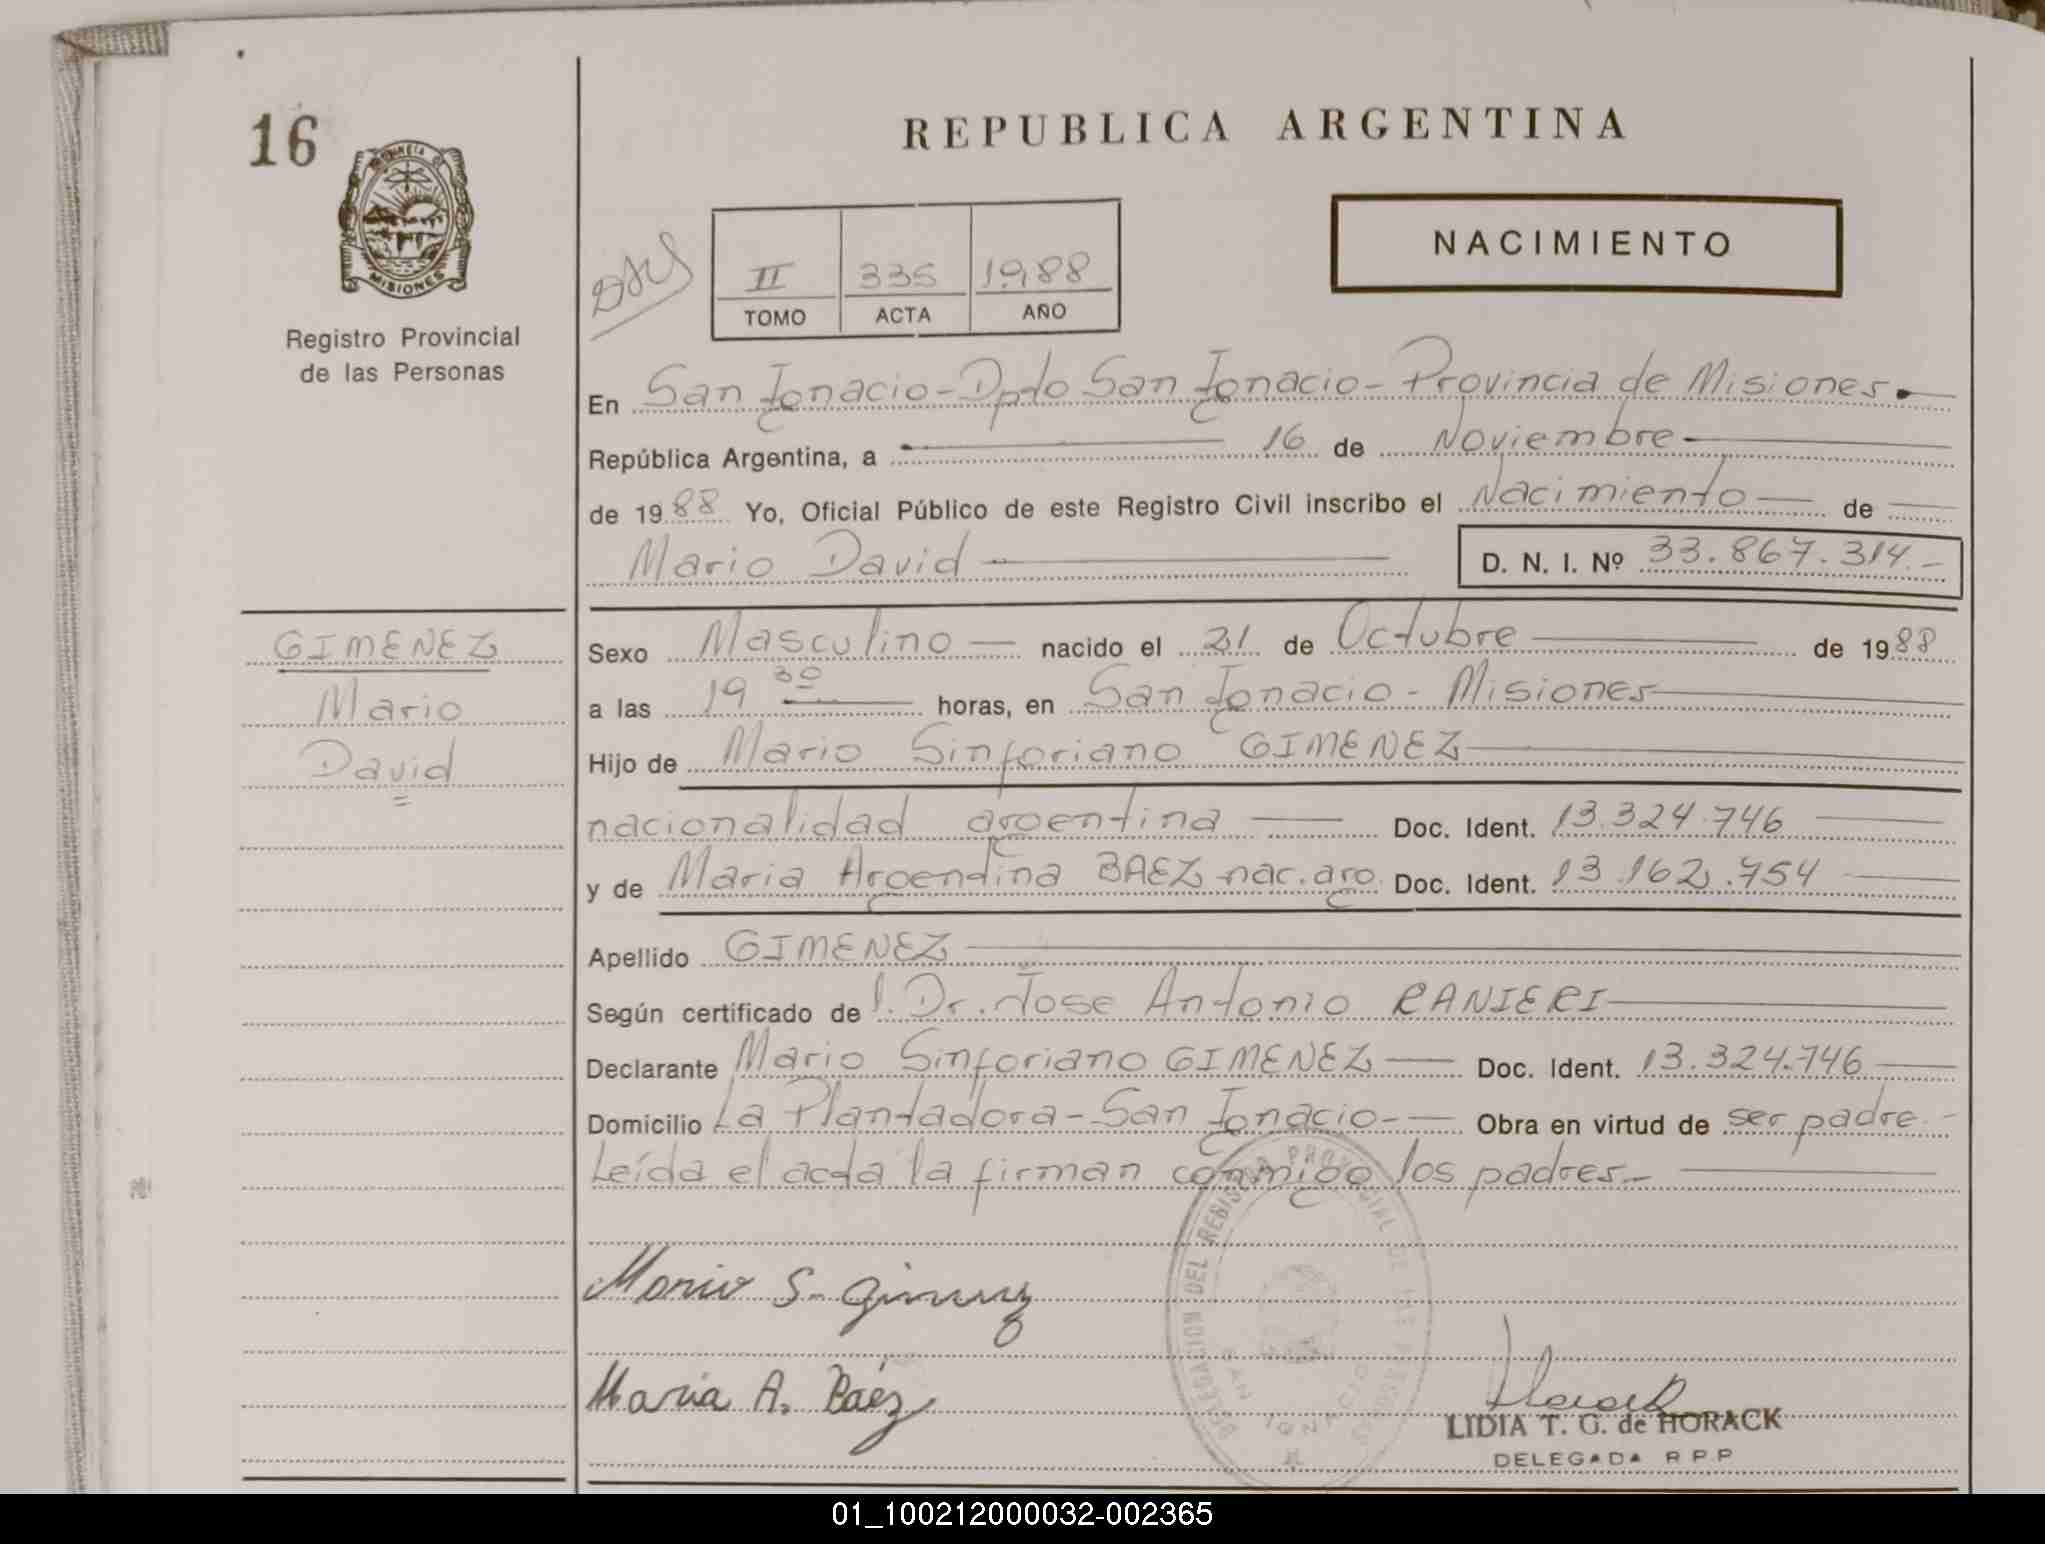 16
PROVINCIA DE
MISIONES
Registro Provincial
de las Personas
REPUBLICA ARGENTINA
NACIMIENTO
II 335 1.988
TOMO ACTA AÑO
En San Ignacio - Dpto San Ignacio - Provincia de Misiones.
República Argentina, a 16 de Noviembre
de 1988 Yo, Oficial Público de este Registro Civil inscribo el Nacimiento de
Mario David D. N. I. Nº 33.867.314.-
GIMENEZ
Mario
David
Sexo Masculino nacido el 31 de Octubre de 1988
a las 19 30 horas, en San Ignacio - Misiones
Hijo de Mario Sinforiano GIMENEZ
nacionalidad argentina Doc. Ident. 13.324.746
y de Maria Argentina BAEZ nac. arg. Doc. Ident. 13.162.754
Apellido GIMENEZ
Según certificado de l. Dr. Jose Antonio RANIERI
Declarante Mario Sinforiano GIMENEZ Doc. Ident. 13.324.746
Domicilio La Plantadora - San Ignacio - Obra en virtud de ser padre -
Leída el acta la firman conmigo los padres -
DELEGACION DEL REGISTRO PROVINCIAL DE LAS PERSONAS
SAN IGNACIO
Mario S. Gimenez
Maria A. Baéz
Horack
LIDIA T. G. de HORACK
DELEGADA R P P
01_100212000032-002365